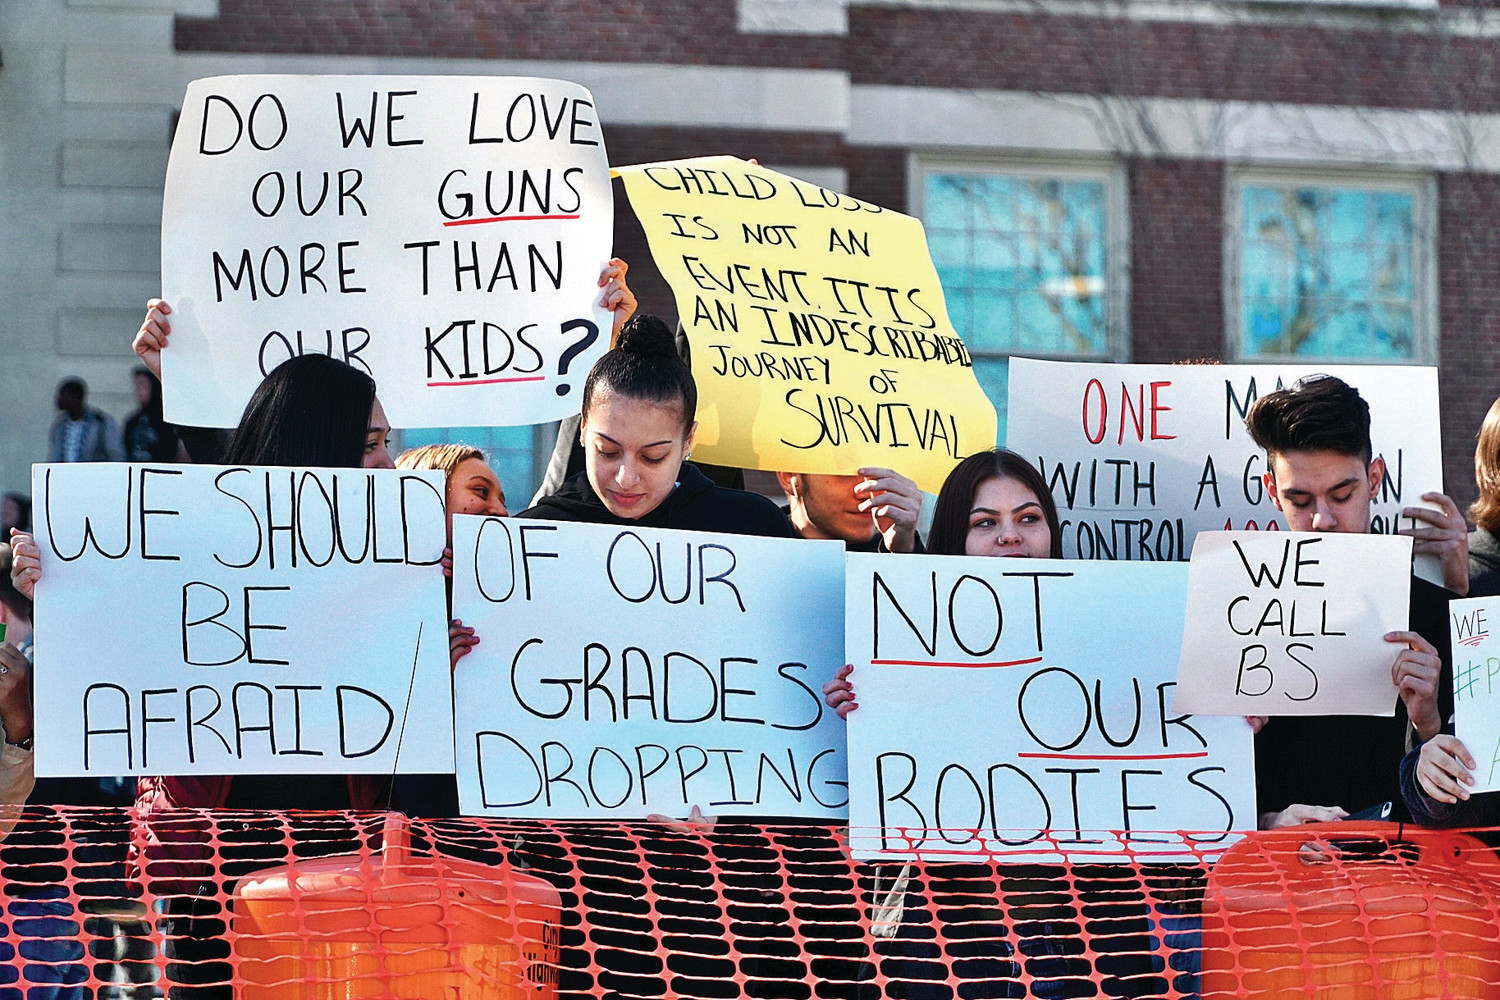 DO WE LOVE
OUR GUNS
MORE THAN
OUR KIDS?
CHILD LOSS
IS NOT AN
EVENT. IT IS
AN INDESCRIBABLE
JOURNEY OF
SURVIVAL
ONE
WITH A
CONTROL
WE SHOULD
BE
AFRAID
OF OUR
GRADES
DROPPING
NOT
OUR
BODIES
WE
CALL
BS
WE
#P